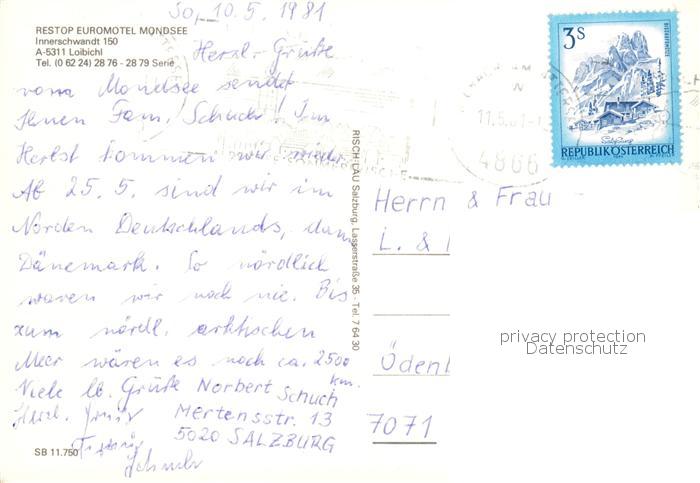 So, 10.5.1981
RESTOP EUROMOTEL MONDSEE
Innerschwandt 150
A-5311 Loibichl
Tel. (0 62 24) 28 76 - 28 79 Serie
Herzl. Grüße
vom Mondsee sendet
Ihnen Fam. Schuch! Im
Herbst kommen wir wieder.
Ab 25.5. sind wir im
Norden Deutschlands, dann
Dänemark. So nördlich
waren wir noch nie. Bis
zum nördl. arktischen
Meer wären es noch ca. 2500
km.
Viele lb. Grüße Norbert Schuch
Mertensstr. 13
5020 SALZBURG
Herzl.
SB 11.750
RISCH-LAU Salzburg, Lasserstraße 35 - Tel. 7 64 30
3 S
REPUBLIK ÖSTERREICH
11.5.81
4866
Herrn & Frau
L. &
Öden
7071
privacy protection
Datenschutz